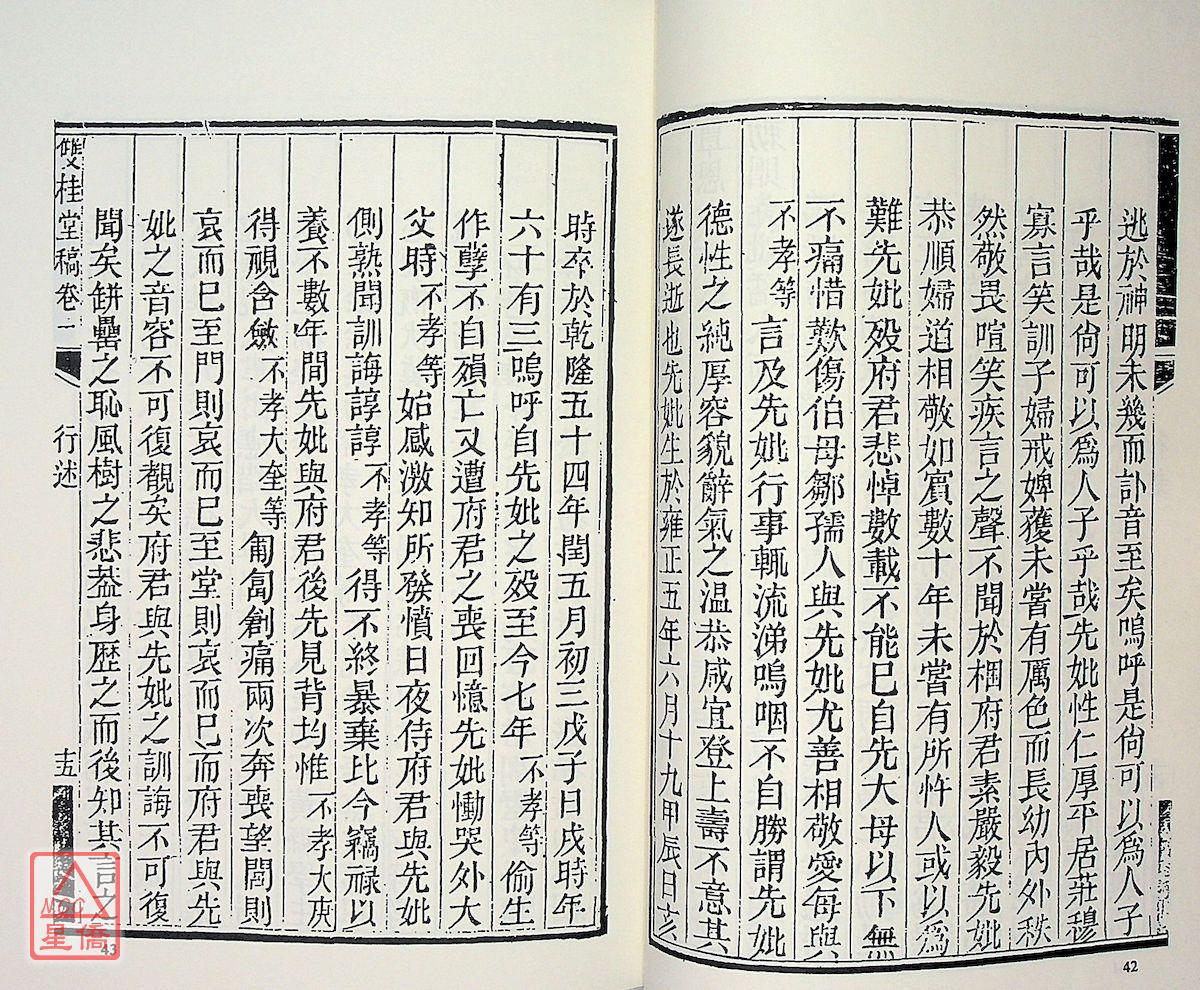 逃於神明未幾而訃音至矣嗚呼是尙可以爲人子
乎哉是尙可以爲人子乎哉先妣性仁厚平居莊穆
寡言笑訓子婦戒婢蒦未嘗有厲色而長幼內外秩
然敬畏喧笑疾言之聲不聞於梱府君素嚴毅先妣
恭順婦道相敬如賓數十年未嘗有所忤人或以爲
難先妣歿府君悲悼數載不能已自先大母以下無
不痛惜歎傷伯母鄒孺人與先妣尤善相敬愛每與
不孝等言及先妣行事輒流涕嗚咽不自勝謂先妣
德性之純厚容貌辭氣之溫恭咸宜登上壽不意其
遂長逝也先妣生於雍正五年六月十九甲辰日亥
42
時卒於乾隆五十四年閏五月初三戊子日戌時年
六十有三嗚呼自先妣之歿至今七年不孝等偷生
作孽不自殞亡又遭府君之喪回憶先妣慟哭外大
父時不孝等始感激知所發憤日夜侍府君與先妣
側熟聞訓誨諄諄不孝等得不終暴棄比今竊祿以
養不數年間先妣與府君後先見背均惟不孝大庚
得視含斂不孝大奎等匍匐創痛兩次奔喪望閭則
哀而已至門則哀而已至堂則哀而已而府君與先
妣之音容不可復覩矣府君與先妣之訓誨不可復
聞矣缾罍之恥風樹之悲葢身歷之而後知其言之
雙桂堂稿卷一 行述 十五
43
MOC
星僑